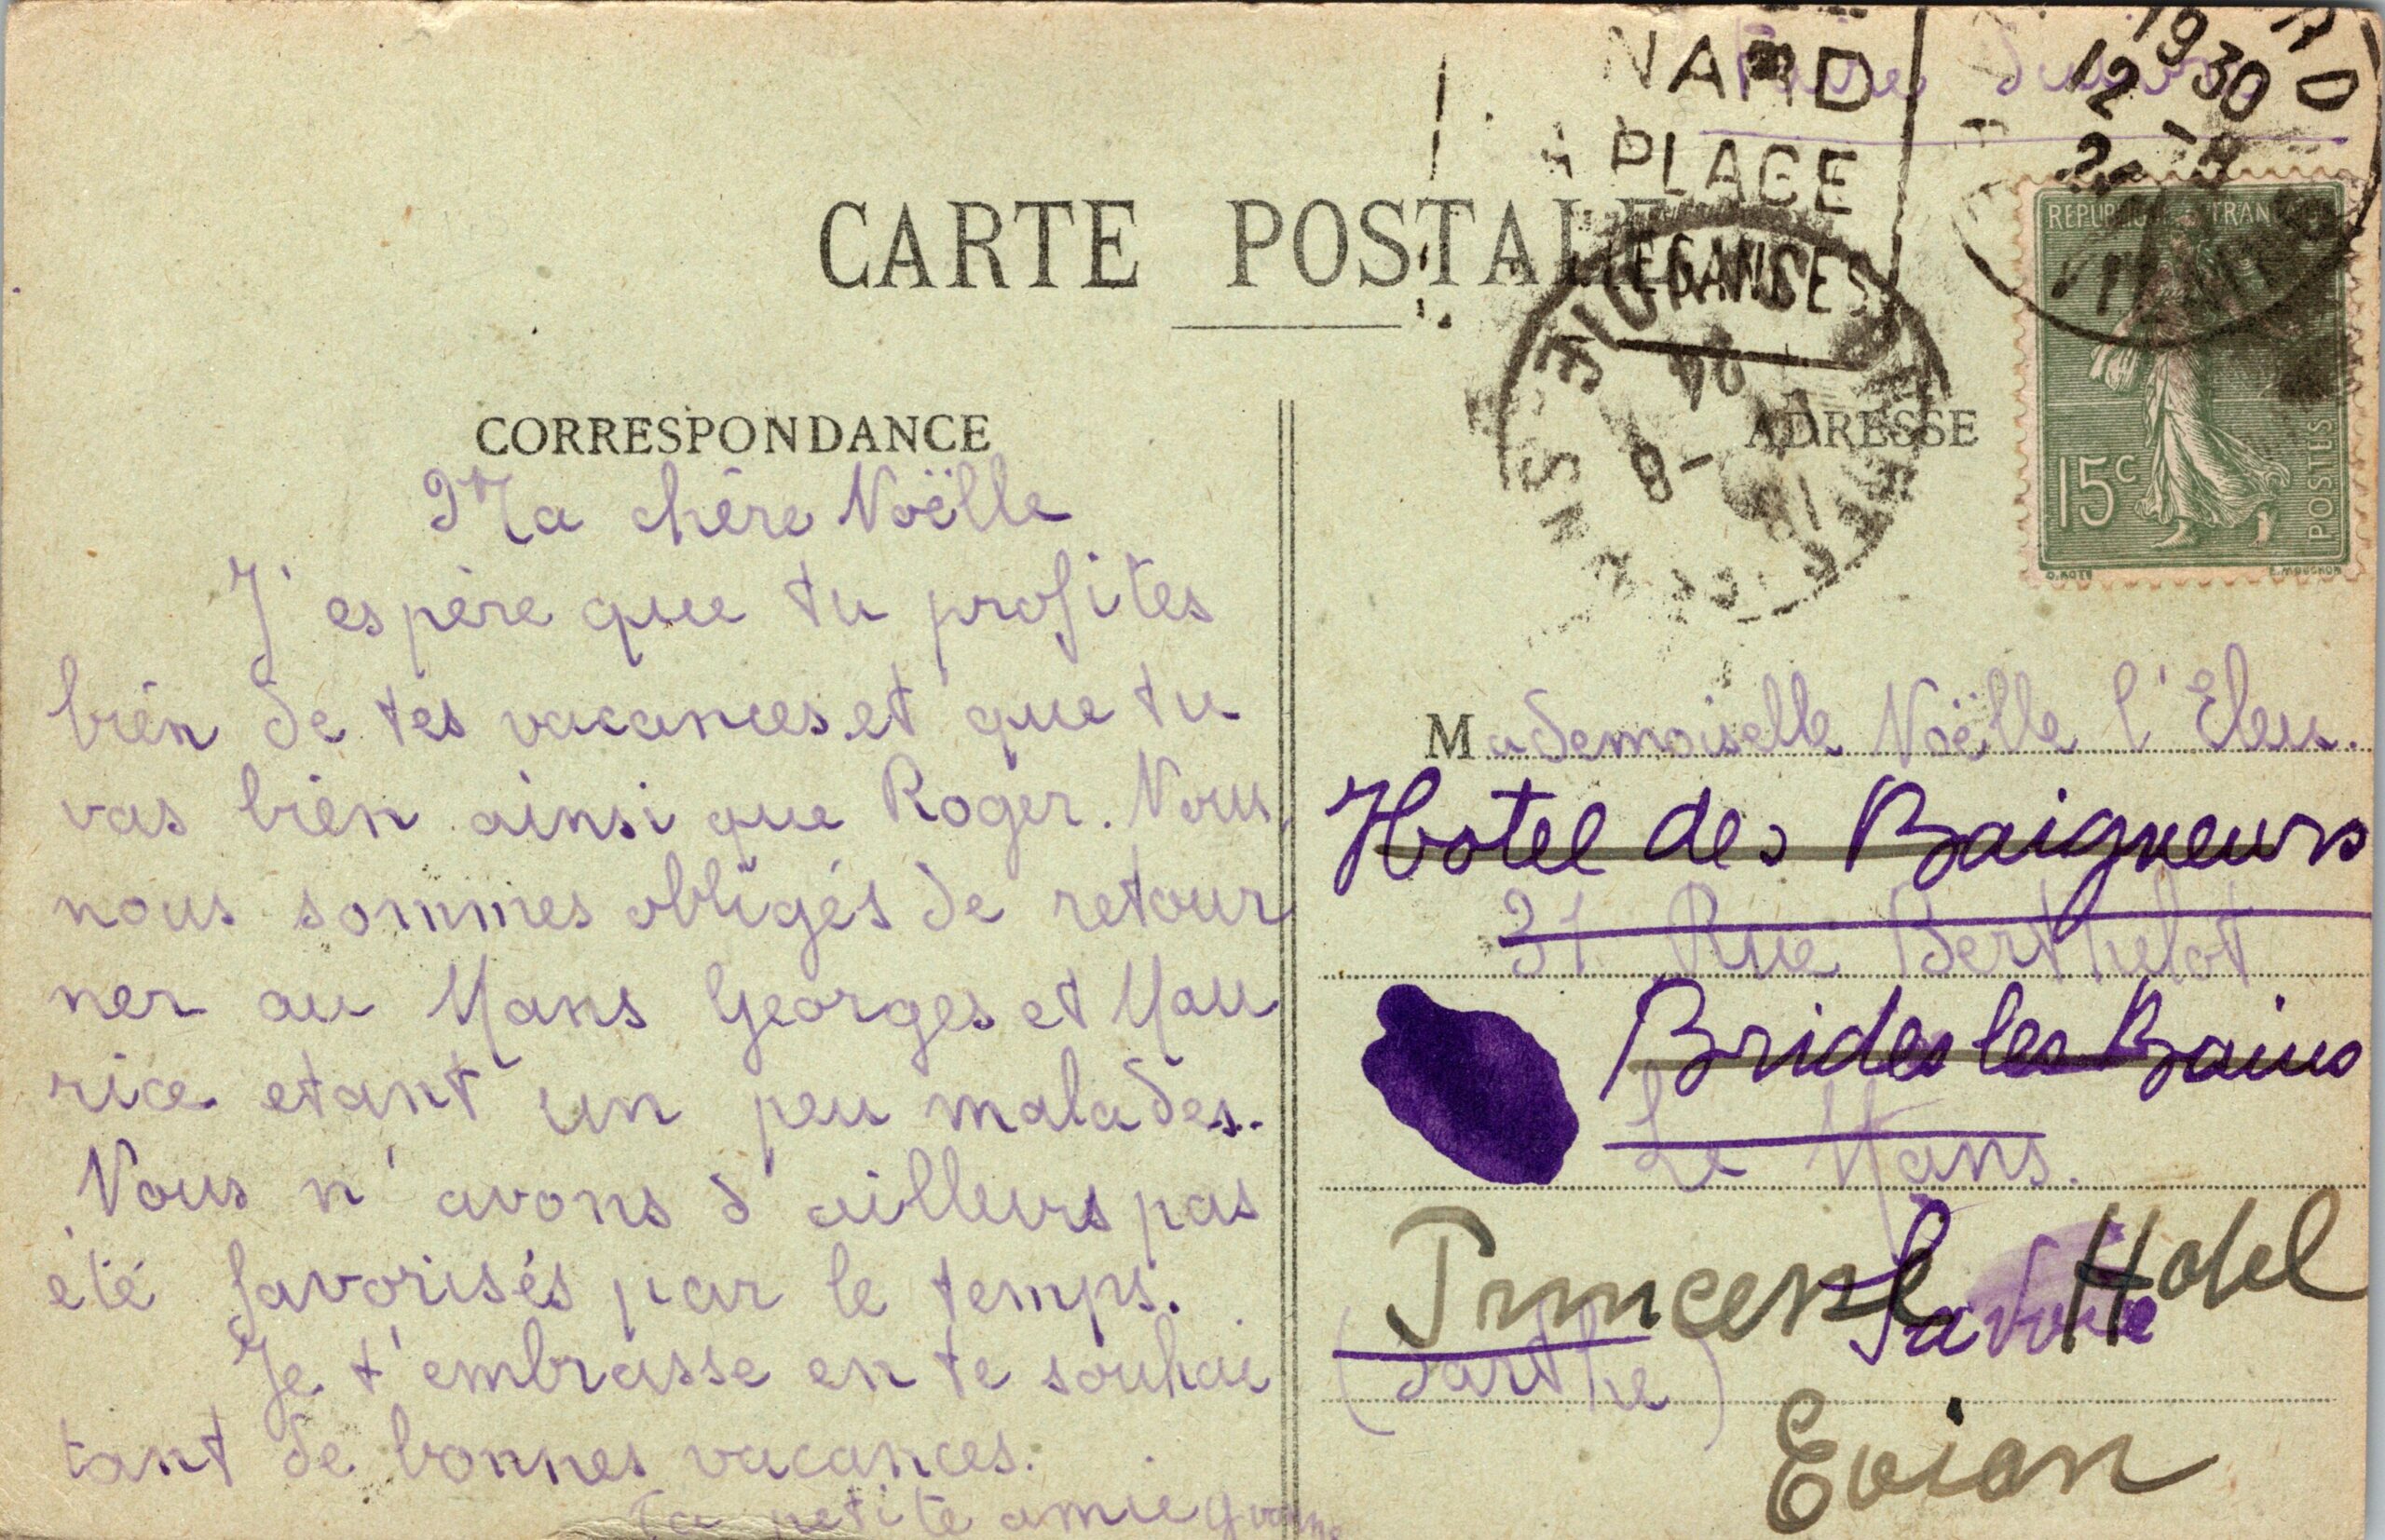 CARTE POSTALE
CORRESPONDANCE
Ma chère Noëlle
J'espère que tu profites
bien de tes vacances et que tu
vas bien ainsi que Roger. Nous
nous sommes obligés de retour
ner au Mans Georges et Mau
rice etant un peu malades.
Nous n'avons d'ailleurs pas
été favorisés par le temps.
Je t'embrasse en te souhai
tant de bonnes vacances.
Ta petite amie Yvonne
NARD
PLAGE
19 30
12
ADRESSE
REPUBLIQUE FRANÇAISE
15c
POSTES
Mademoiselle Noëlle l'Eleu.
Hotel des Baigneurs
31 Rue Berthelot
Brides les Bains
Le Mans.
Savoie
Princess Hotel
(Sarthe)
Evian